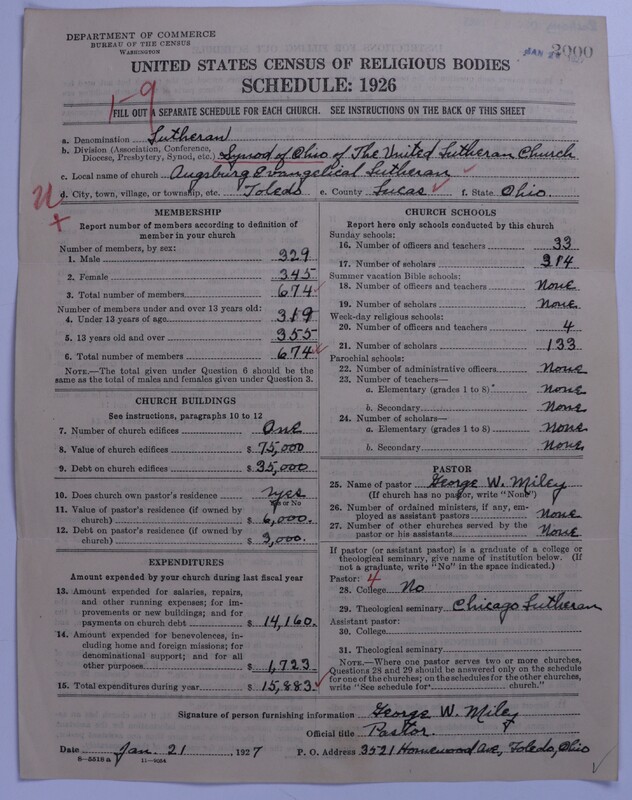 DEPARTMENT OF COMMERCE
BUREAU OF THE CENSUS
WASHINGTON
3900
UNITED STATES CENSUS OF RELIGIOUS BODIES
SCHEDULE: 1926
1-9
FILL OUT A SEPARATE SCHEDULE FOR EACH CHURCH. SEE INSTRUCTIONS ON THE BACK OF THIS SHEET
a. Denomination Lutheran
b. Division (Association, Conference, Diocese, Presbytery, Synod, etc.) Synod of Ohio of The United Lutheran Church
c. Local name of church Augsburg Evangelical Lutheran
d. City, town, village, or township, etc. Toledo e. County Lucas f. State Ohio.
MEMBERSHIP
Report number of members according to definition of
member in your church
Number of members, by sex:
1. Male 329
2. Female 345
3. Total number of members 674
Number of members under and over 13 years old:
4. Under 13 years of age 319
5. 13 years old and over 355
6. Total number of members 674
NOTE.—The total given under Question 6 should be
the same as the total of males and females given under Question 3.
CHURCH BUILDINGS
See instructions, paragraphs 10 to 12
7. Number of church edifices One
8. Value of church edifices $ 75,000
9. Debt on church edifices $ 35,000
10. Does church own pastor's residence yes
Yes or No
11. Value of pastor's residence (if owned by
church) $ 6,000.
12. Debt on pastor's residence (if owned by
church) $ 3,000.
EXPENDITURES
Amount expended by your church during last fiscal year
13. Amount expended for salaries, repairs,
and other running expenses; for im-
provements or new buildings; and for
payments on church debt $ 14,160.
14. Amount expended for benevolences, in-
cluding home and foreign missions; for
denominational support; and for all
other purposes $ 1,723
15. Total expenditures during year $ 15,883.
CHURCH SCHOOLS
Report here only schools conducted by this church
Sunday schools:
16. Number of officers and teachers 33
17. Number of scholars 314
Summer vacation Bible schools:
18. Number of officers and teachers None
19. Number of scholars None
Week-day religious schools:
20. Number of officers and teachers 4
21. Number of scholars 133
Parochial schools:
22. Number of administrative officers None
23. Number of teachers—
a. Elementary (grades 1 to 8) None
b. Secondary None
24. Number of scholars—
a. Elementary (grades 1 to 8) None
b. Secondary None
PASTOR
25. Name of pastor George W. Miley
(If church has no pastor, write "None")
26. Number of ordained ministers, if any, em-
ployed as assistant pastors None
27. Number of other churches served by the
pastor or his assistants None
If pastor (or assistant pastor) is a graduate of a college or
theological seminary, give name of institution below. (If
not a graduate, write "No" in the space indicated.)
Pastor: 4
28. College No
29. Theological seminary Chicago Lutheran
Assistant pastor:
30. College
31. Theological seminary
NOTE.—Where one pastor serves two or more churches,
Questions 28 and 29 should be answered only on the schedule
for one of the churches; on the schedules for the other churches,
write "See schedule for church."
Signature of person furnishing information George W. Miley
Official title Pastor.
Date Jan. 21 1927 P. O. Address 3521 Homewood Ave, Toledo, Ohio
8-5518 a 11-9054